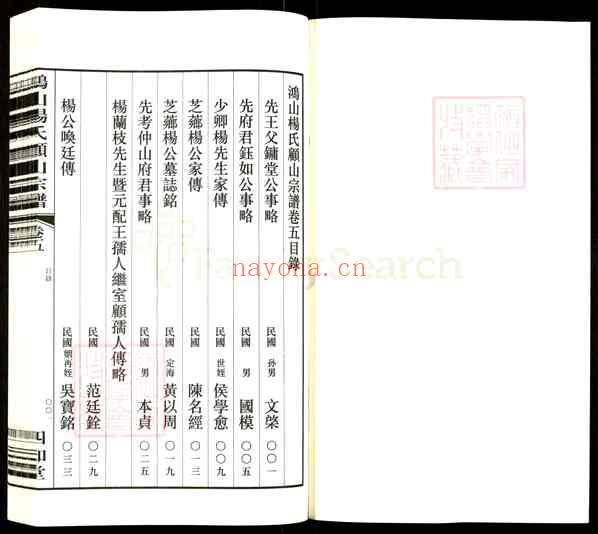 鴻山楊氏顧山宗譜卷五目錄
先王父鏞堂公事略 民國 孙男 文棨 〇〇一
先府君鈺如公事略 民國 男 國模 〇〇五
少卿楊先生家傳 民國 世姪 侯學愈 〇〇九
芝薌楊公家傳 民國 陳名經 〇一三
芝薌楊公墓誌銘 民國 定海 黃以周 〇一九
先考仲山府君事略 民國 男 本貞 〇二五
楊蘭枝先生暨元配王孺人繼室顧孺人傳略
民國 范廷銓 〇二九
楊公喚廷傳 民國 姻再姪 吳寶銘 〇三三
鴻山楊氏顧山宗譜 卷五 目錄 〇〇一 四知堂
nayona.cn
FamilySearch